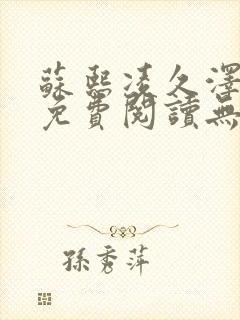 蘇熙凌久澤
免費閱讀無
孫秀萍